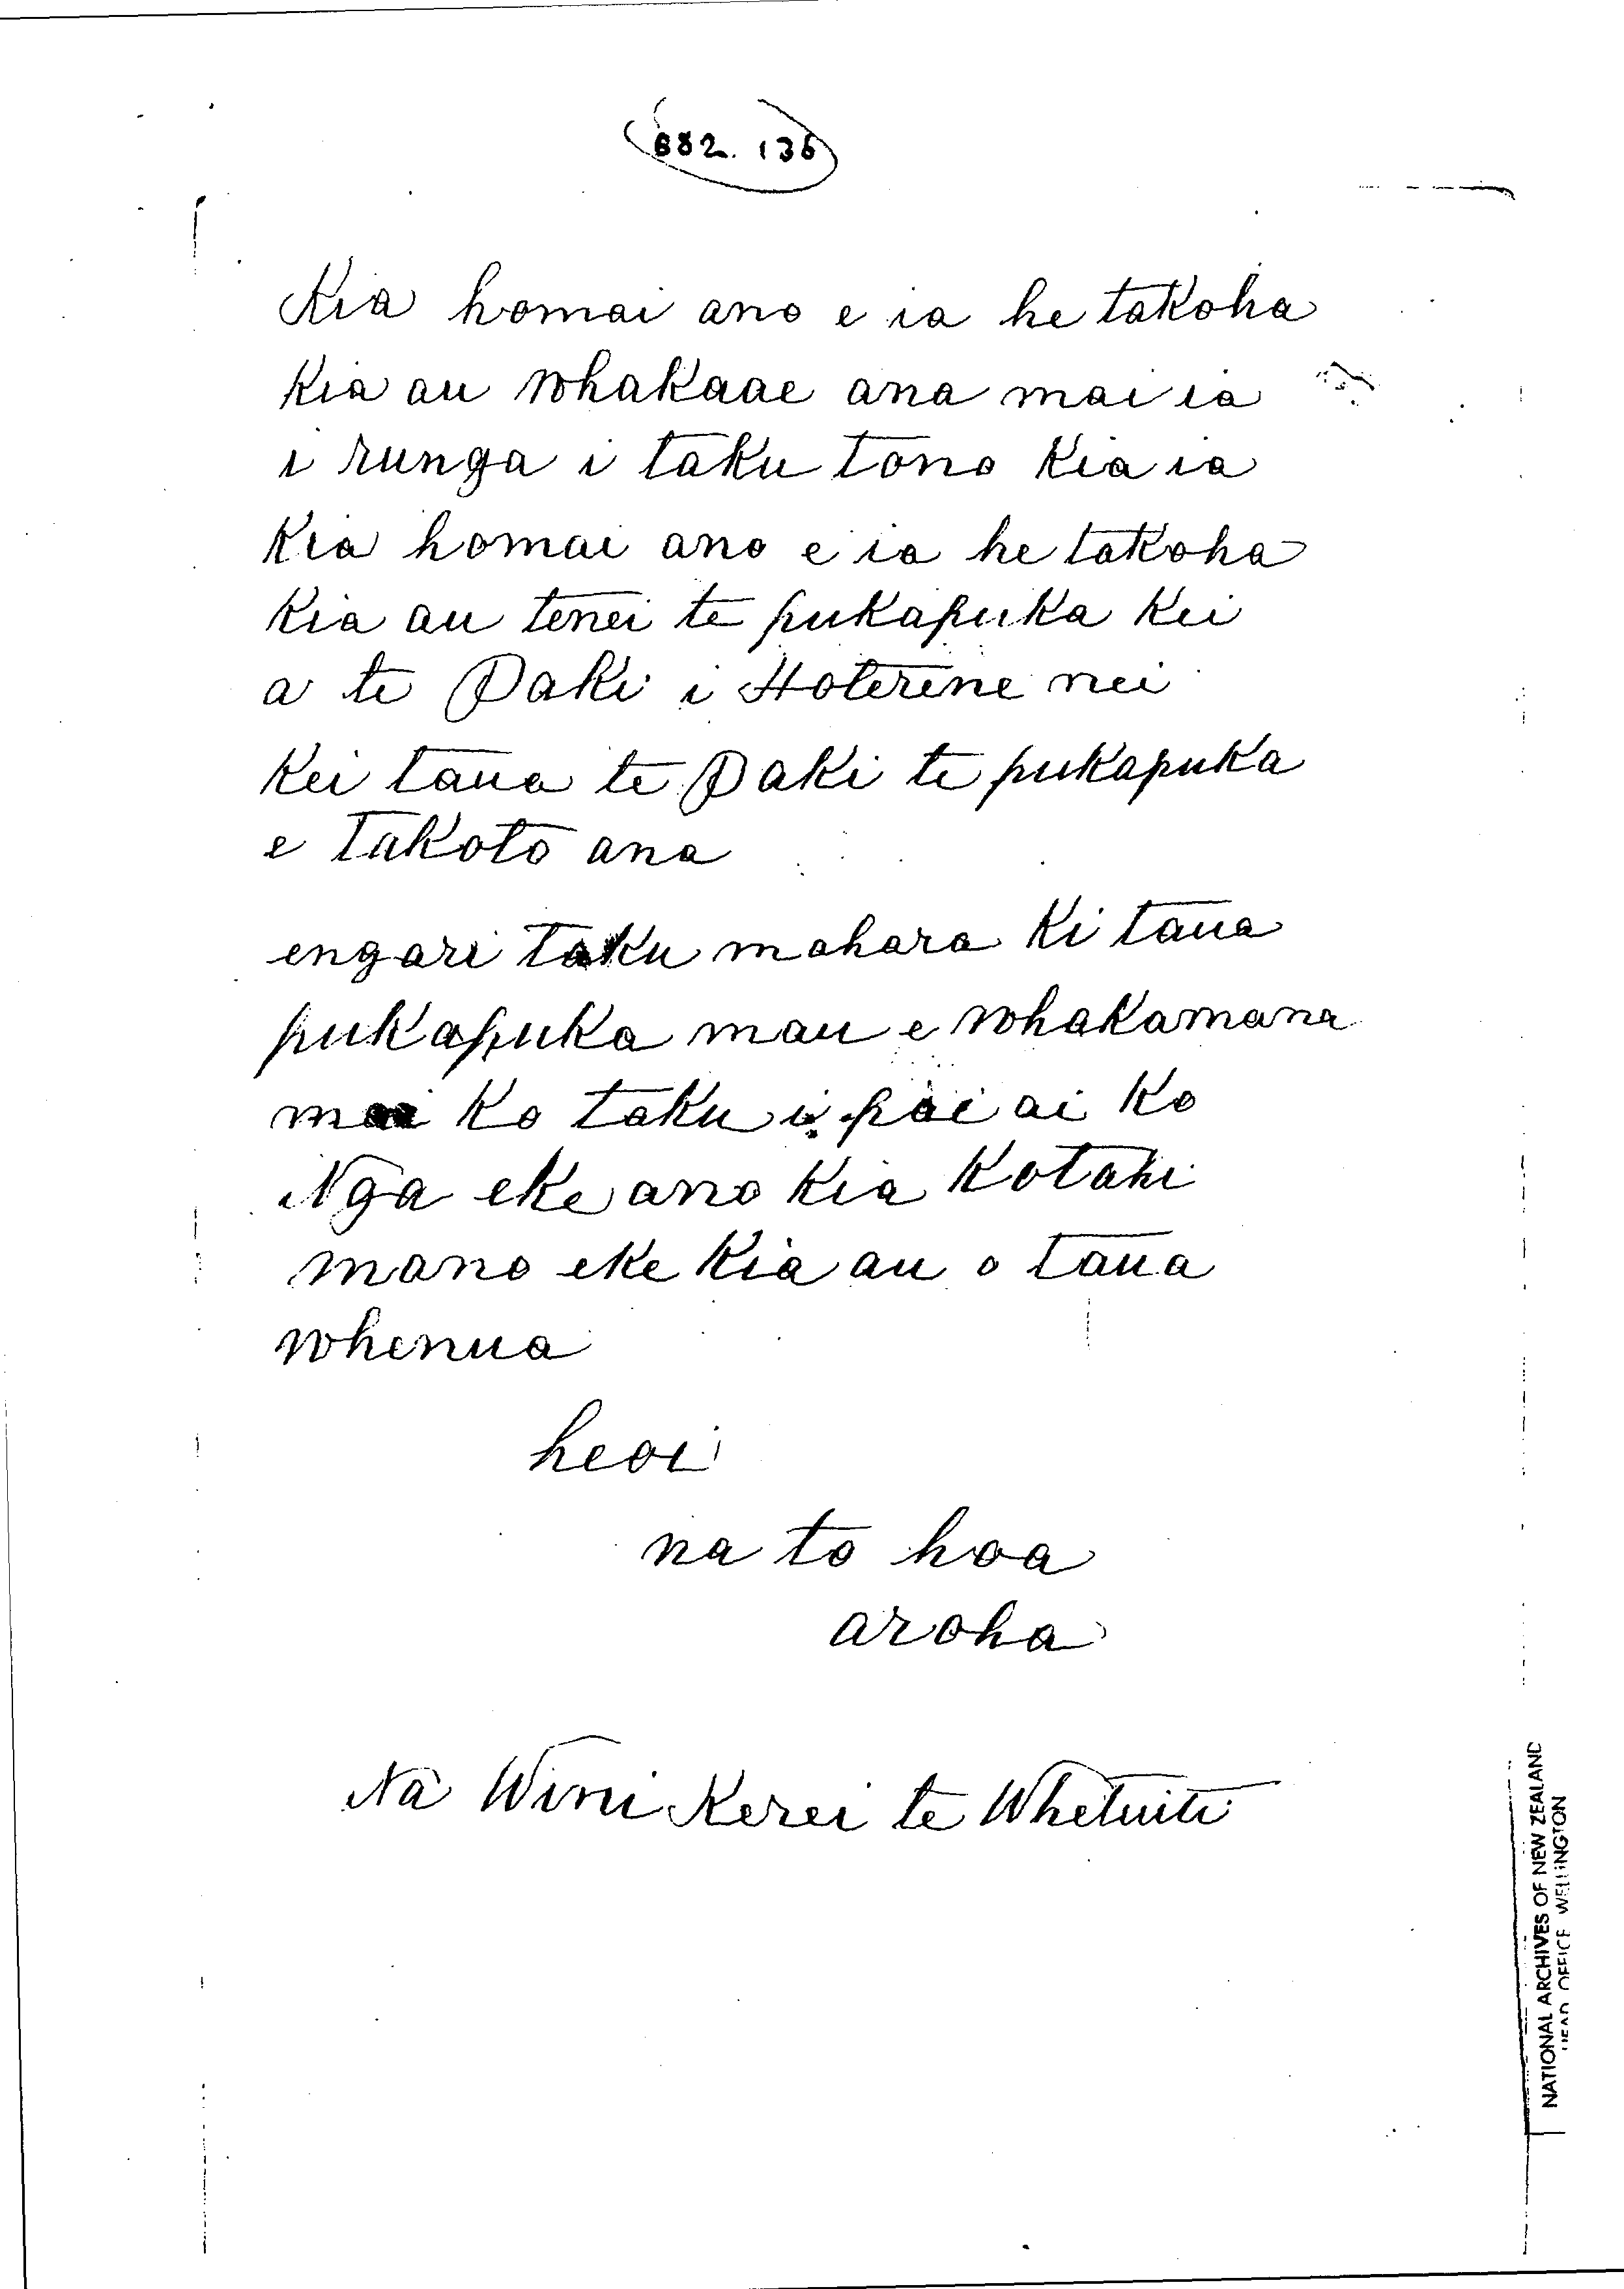 682. 136
Kia homai ano e ia he takoha
Kia au whakaae ana mai ia
i runga i taku tono Kia ia
Kia homai ano e ia he takoha
Kia au tenei te pukapuka Kei
a te Paki i Hoterene nei
Kei taua te Paki te pukapuka
e takoto ana
engari taku mahara Ki taua
pukapuka mau e whakamana
mai Ko taku i pai ai Ko
Nga eke ano Kia Kotahi
mano eke Kia au o taua
whenua
heoi
na to hoa
aroha
Na Wini Kerei te Whetuiti
NATIONAL ARCHIVES OF NEW ZEALAND
HEAD OFFICE WELLINGTON